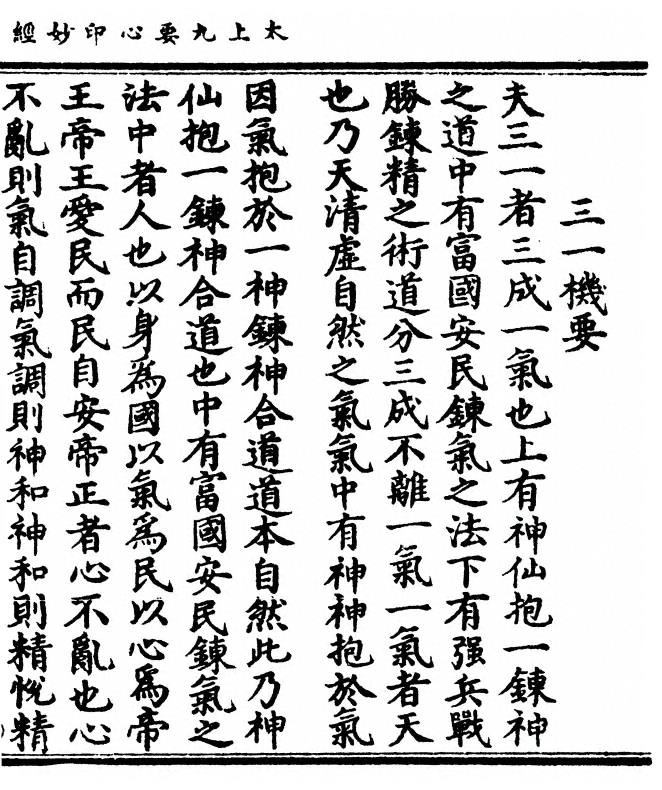 太上九要心印妙經
三一機要
夫三一者三成一氣也上有神仙抱一鍊神
之道中有富國安民鍊氣之法下有强兵戰
勝鍊精之術道分三成不離一氣一氣者天
也乃天清虛自然之氣氣中有神神抱於氣
因氣抱於一神鍊神合道道本自然此乃神
仙抱一鍊神合道也中有富國安民鍊氣之
法中者人也以身爲國以氣爲民以心爲帝
王帝王愛民而民自安帝正者心不亂也心
不亂則氣自調氣調則神和神和則精悅精